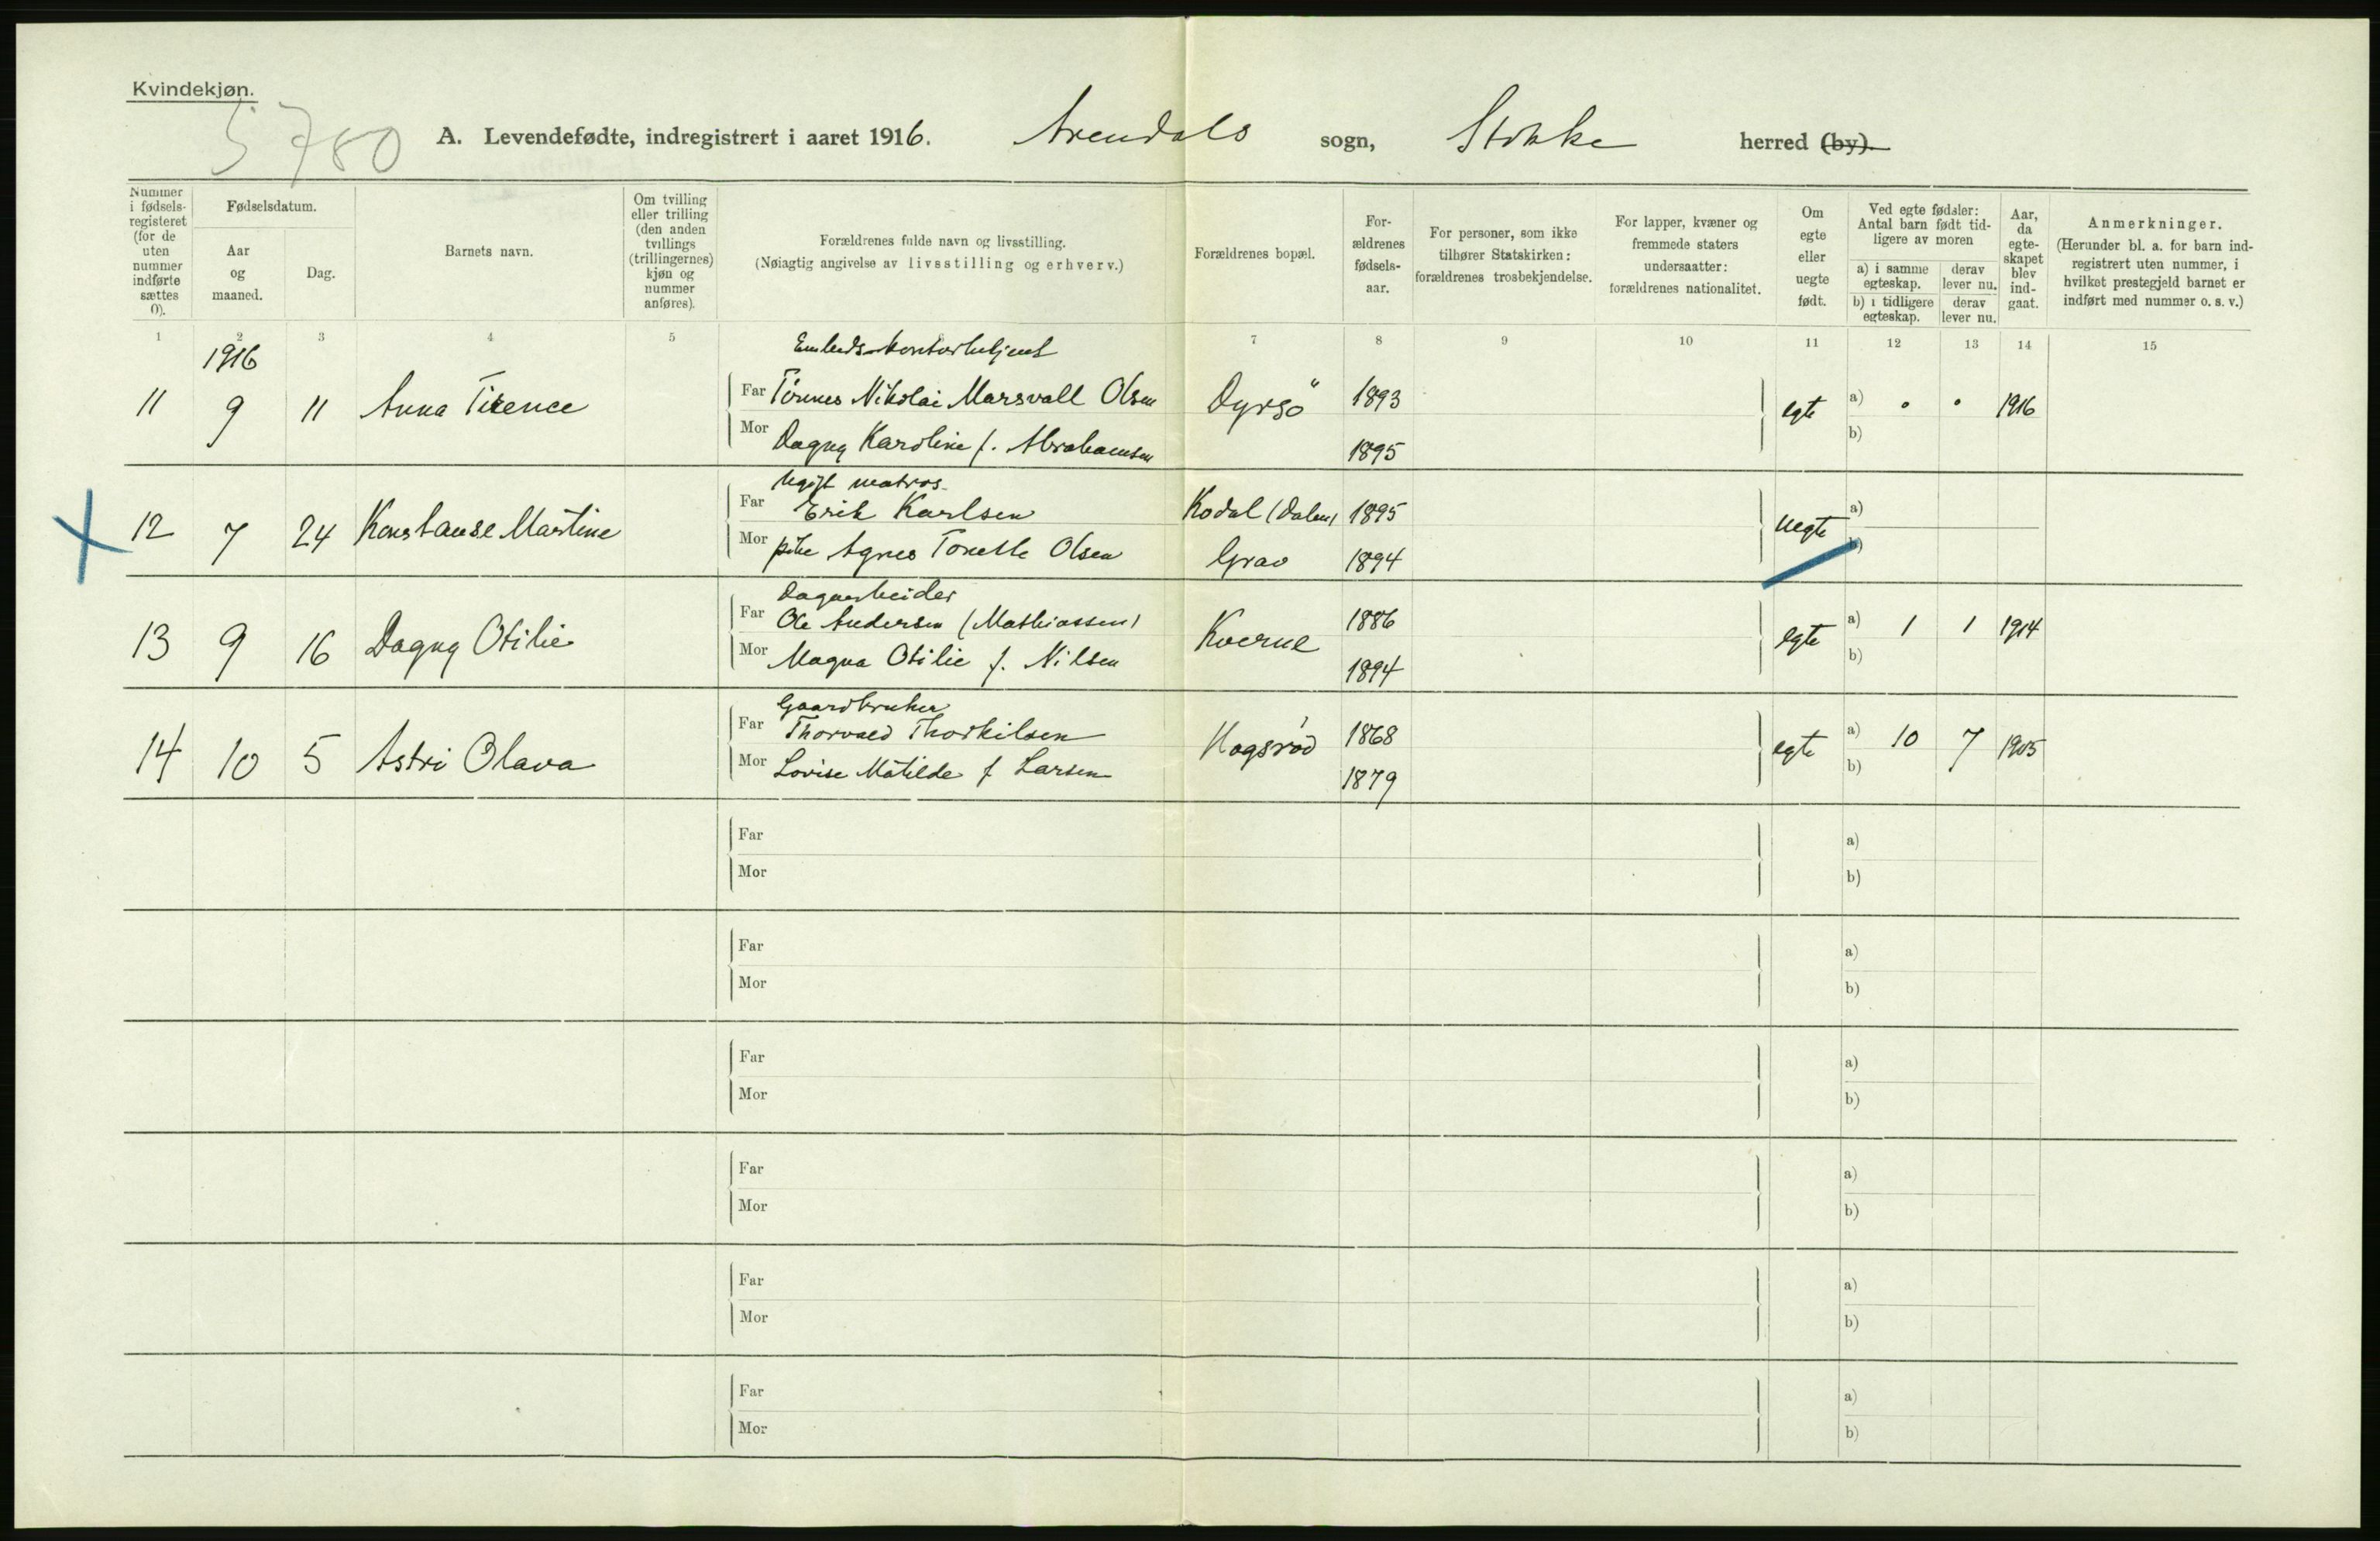 Kvindekjøn.
5780
A. Levendefødte, indregistrert i aaret 1916. Arendals sogn, Stokke herred (by).
Nummer i fødselsregisteret (for de uten nummer indførte sættes 0).
Fødselsdatum.
Aar og maaned.
Dag.
Barnets navn.
Om tvilling eller trilling (den anden tvillings (trillingernes) kjøn og nummer anføres).
Forældrenes fulde navn og livsstilling.
(Nøiagtig angivelse av livsstilling og erhverv.)
Forældrenes bopæl.
Forældrenes fødselsaar.
For personer, som ikke tilhører Statskirken: forældrenes trosbekjendelse.
For lapper, kvæner og fremmede staters undersaatter: forældrenes nationalitet.
Om egte eller uegte født.
Ved egte fødsler: Antal barn født tidligere av moren
a) i samme egteskap.
derav lever nu.
b) i tidligere egteskap.
derav lever nu.
Aar, da egteskapet blev indgaat.
Anmerkninger.
(Herunder bl. a. for barn indregistrert uten nummer, i hvilket prestegjeld barnet er indført med nummer o. s. v.)
1 2 3 4 5 7 8 9 10 11 12 13 14 15
1916
11 9 11 Anna Tirence
Far Tirenes Nikolai Marsvall Olsen Dyrsö 1893 egte a) 0 0 1916
Mor Dagny Karoline f. Abrahamsen 1895 b)
Ugift matros
12 7 24 Konstanse Martine
Far Erik Karlsen Kodal (Dalen) 1895 uegte a)
Mor pike Agnes Tonette Olsen Grav 1894 b)
Dagarbeider
13 9 16 Dagny Otilie
Far Ole Andersen (Mathiassen) Kverne 1886 egte a) 1 1 1914
Mor Magna Otilie f. Nilsen 1894 b)
Gaardbruker
14 10 5 Astri Olava
Far Thorvald Thorkilsen Hogsrød 1868 egte a) 10 7 1905
Mor Lovise Matilde f Larsen 1879 b)
Far a)
Mor b)
Far a)
Mor b)
Far a)
Mor b)
Far a)
Mor b)
Far a)
Mor b)
Far a)
Mor b)